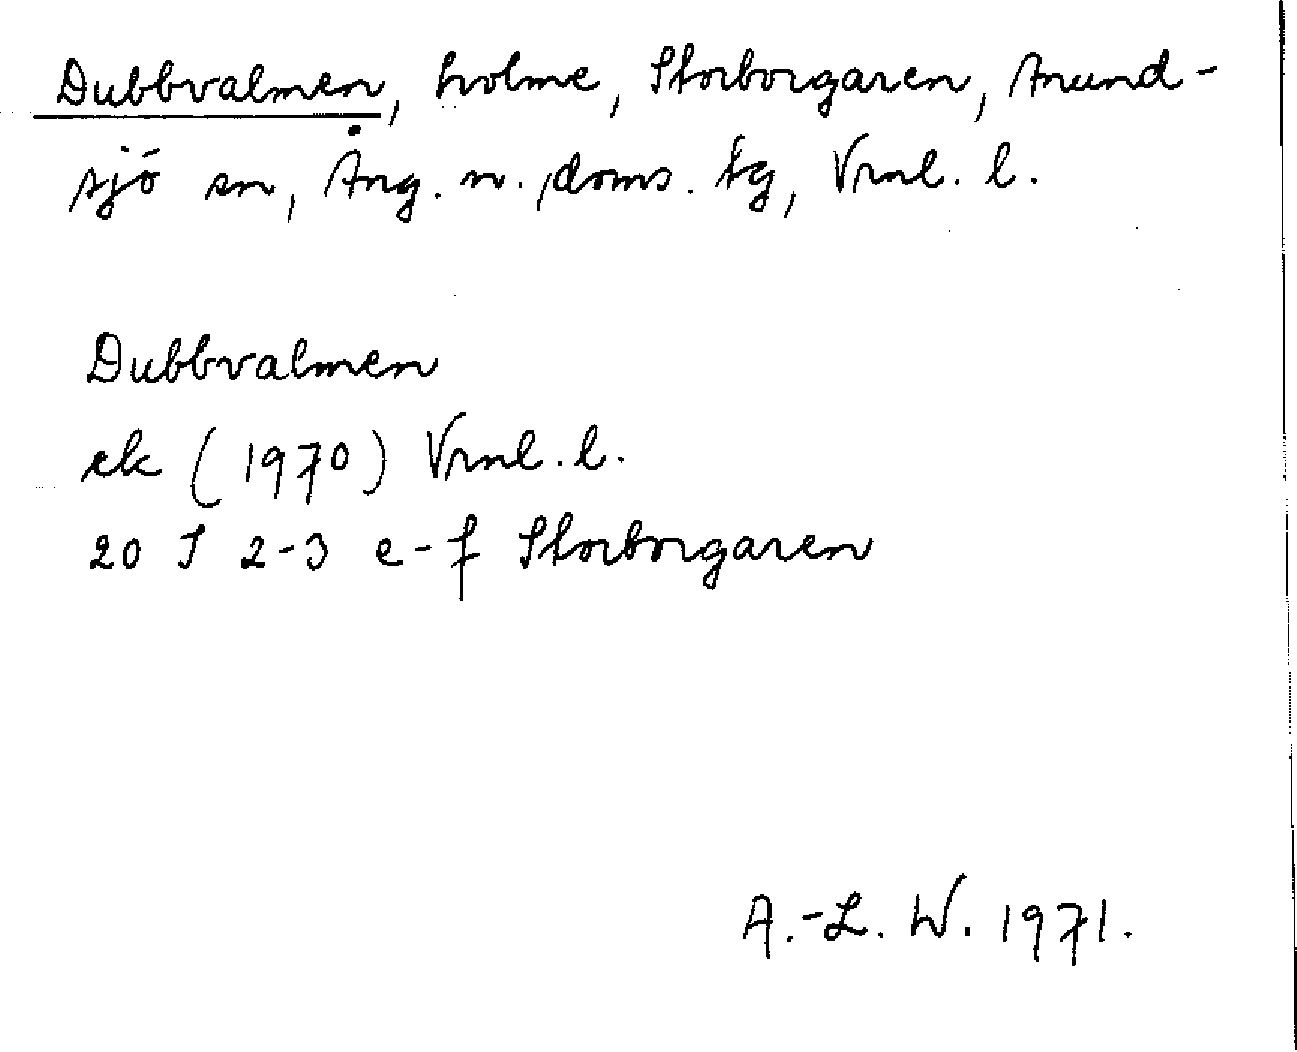 Dubbvalmen, holme, Storborgaren, Anund-
sjö sn, Ång. n. doms. tg, Vrnl. l.
Dubbvalmen
ek (1970) Vrnl. l.
20 J 2-3 e-f Storborgaren
A.-L. W. 1971.